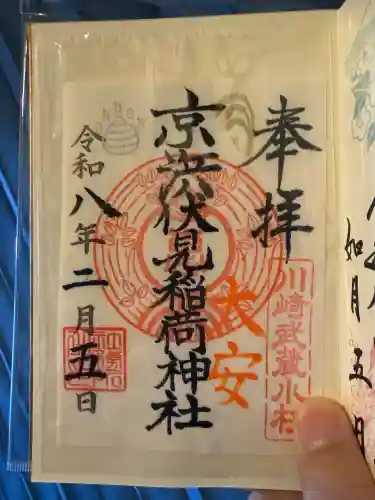 奉拝
川崎武蔵小杉
京浜伏見稲荷神社
大安
令和八年二月五日
如月五日